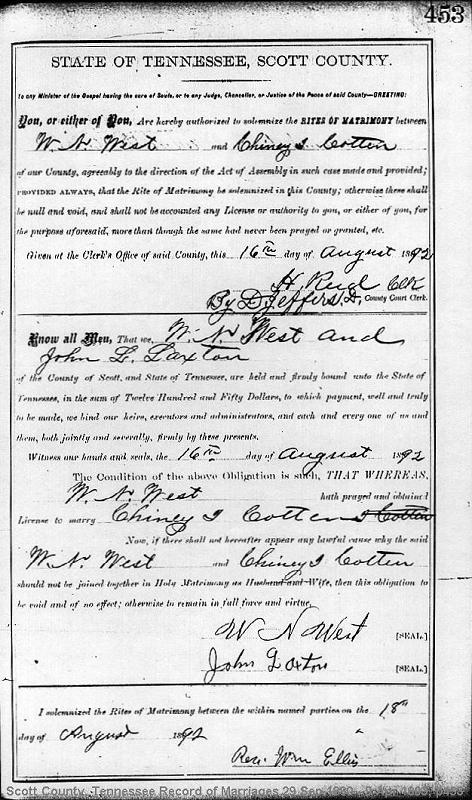 453
STATE OF TENNESSEE, SCOTT COUNTY.
To any Minister of the Gospel having the care of Souls, or to any Judge, Chancellor, or Justice of the Peace of said County—GREETING:
You, or either of You, Are hereby authorized to solemnize the RITES OF MATRIMONY between
W. N. West and Chiney I Cotten
of our County, agreeably to the direction of the Act of Assembly in such case made and provided;
PROVIDED ALWAYS, that the Rite of Matrimony be solemnized in this County; otherwise these shall
be null and void, and shall not be accounted any License or authority to you, or either of you, for
the purpose aforesaid, more than though the same had never been prayed or granted, etc.
Given at the Clerk's Office of said County, this 16th day of August 1892
H. Reid Clk
By D. Jeffers, D. County Court Clerk.
Know all Men, That we, W. N. West and
John L. Laxton
of the County of Scott, and State of Tennessee, are held and firmly bound unto the State of
Tennessee, in the sum of Twelve Hundred and Fifty Dollars, to which payment, well and truly
to be made, we bind our heirs, executors and administrators, and each and every one of us and
them, both jointly and severally, firmly by these presents.
Witness our hands and seals, the 16th day of August 1892
The Condition of the above Obligation is such, THAT WHEREAS,
W. N. West hath prayed and obtained
License to marry Chiney I Cotten I Cotten
Now, if there shall not hereafter appear any lawful cause why the said
W. N. West and Chiney I Cotten
should not be joined together in Holy Matrimony as Husband and Wife, then this obligation to
be void and of no effect; otherwise to remain in full force and virtue.
W N West [SEAL.]
John Laxton [SEAL.]
I solemnized the Rites of Matrimony between the within named parties on the 18th
day of August 1892
Rev. Wm Ellis
Scott County, Tennessee Record of Marriages 29 Sep